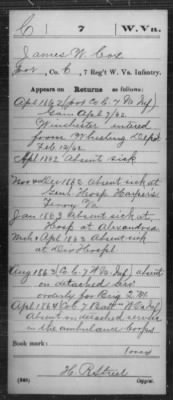 C 7 W. Va.
James W. Cox
Co. C, 7 Reg't W. Va. Infantry.
Appears on Returns as follows:
April 1862 (Co C 7 Va Inf)
Winchester
from Wheeling Dept
Feb 12/62
Apl 1862 Absent sick
Nov & Dec 1862 Absent sick at
Genl Hosp Harper's
Ferry Va
Jan 1863 Absent sick at
Hosp at Alexandria
Mch & Apl 1863 Absent sick
at Div Hospl
Aug 1863 Co C 7 Va Inf absent
on detached ser
orderly for Brig
April 1864 Co B 7 Batt W Va Inf
Absent on detached service
in the ambulance corps
Book mark:
(546)
Copyist.